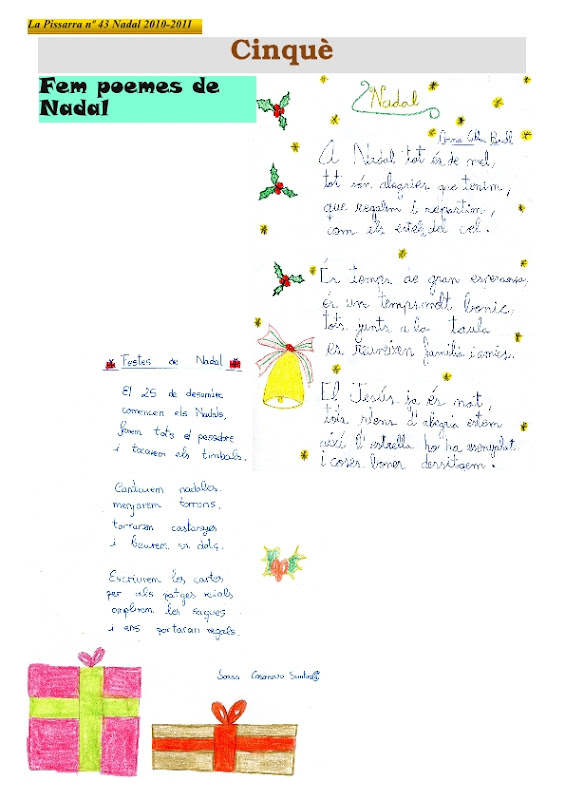 La Pissarra nº 43 Nadal 2010-2011
Cinquè
Fem poemes de
Nadal
Nadal
Anna
A Nadal tot és de mel,
tot són alegries que tenim,
que regalem i repartim,
com els estels del cel.
És temps de gran esperança,
és un temps molt bonic,
tots junts a la taula
es reuneixen família i amics.
El Jesús ja és nat,
tots plens d'alegria estem
així l'estrella ho ha assenyalat
i coses bones desitgem.
Festes de Nadal
El 25 de desembre
comencen els Nadals,
farem tots el pessebre
i tocarem els timbals.
Cantarem nadales
menjarem torrons,
torrarem castanyes
i beurem vi dolç.
Escriurem les cartes
per als patges reials
omplirem les saques
i ens portaran regals.